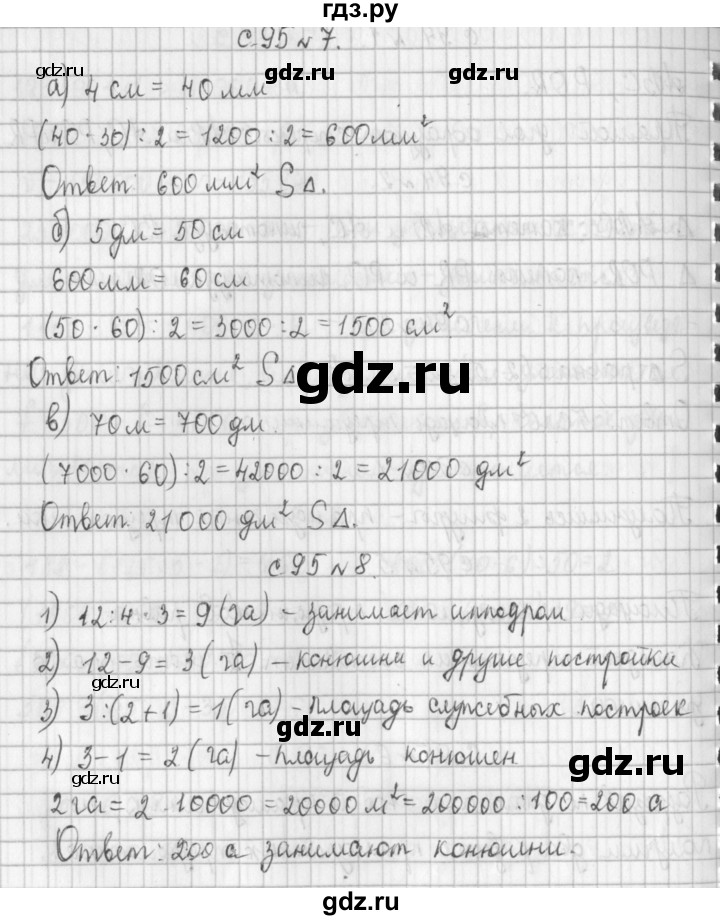 гдз.ру
с.95 №7.
gdz.ru gdz.ru
а) 4 см = 40 мм
(40 · 30) : 2 = 1200 : 2 = 600 мм²
Ответ: 600 мм² S △.
gdz.ru gdz.ru
б) 5 дм = 50 см
600 мм = 60 см
(50 · 60) : 2 = 3000 : 2 = 1500 см²
Ответ: 1500 см² S △
gdz.ru
в) 70 м = 700 дм.
(7000 · 60) : 2 = 42000 : 2 = 21000 дм²
Ответ: 21000 дм² S △.
gdz.ru gdz.ru
с.95 №8.
1) 12 : 4 · 3 = 9 (га) – занимает ипподром
2) 12 – 9 = 3 (га) – конюшни и другие постройки
gdz.ru gdz.ru
3) 3 : (2 + 1) = 1 (га) – площадь служебных построек
gdz.ru
4) 3 – 1 = 2 (га) – площадь конюшен
gdz.ru
gdz.ru
2 га = 2 · 10000 = 20000 м² = 200000 : 100 = 200 а
Ответ: 200 а занимают конюшни.
gdz.ru gdz.ru
gdz.ru